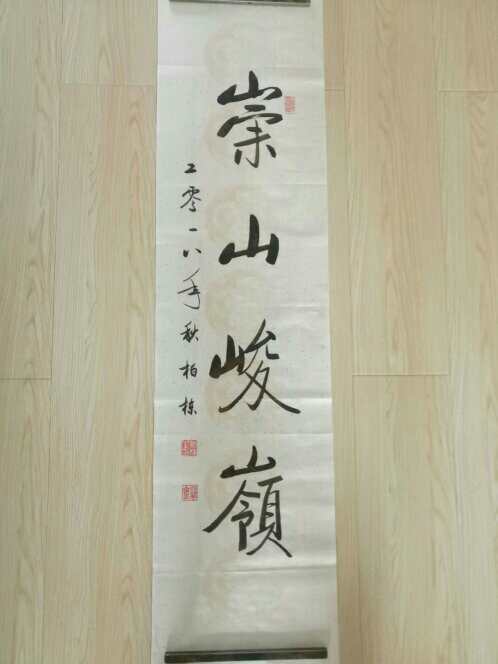 崇山峻嶺
二零一八年秋柏栋